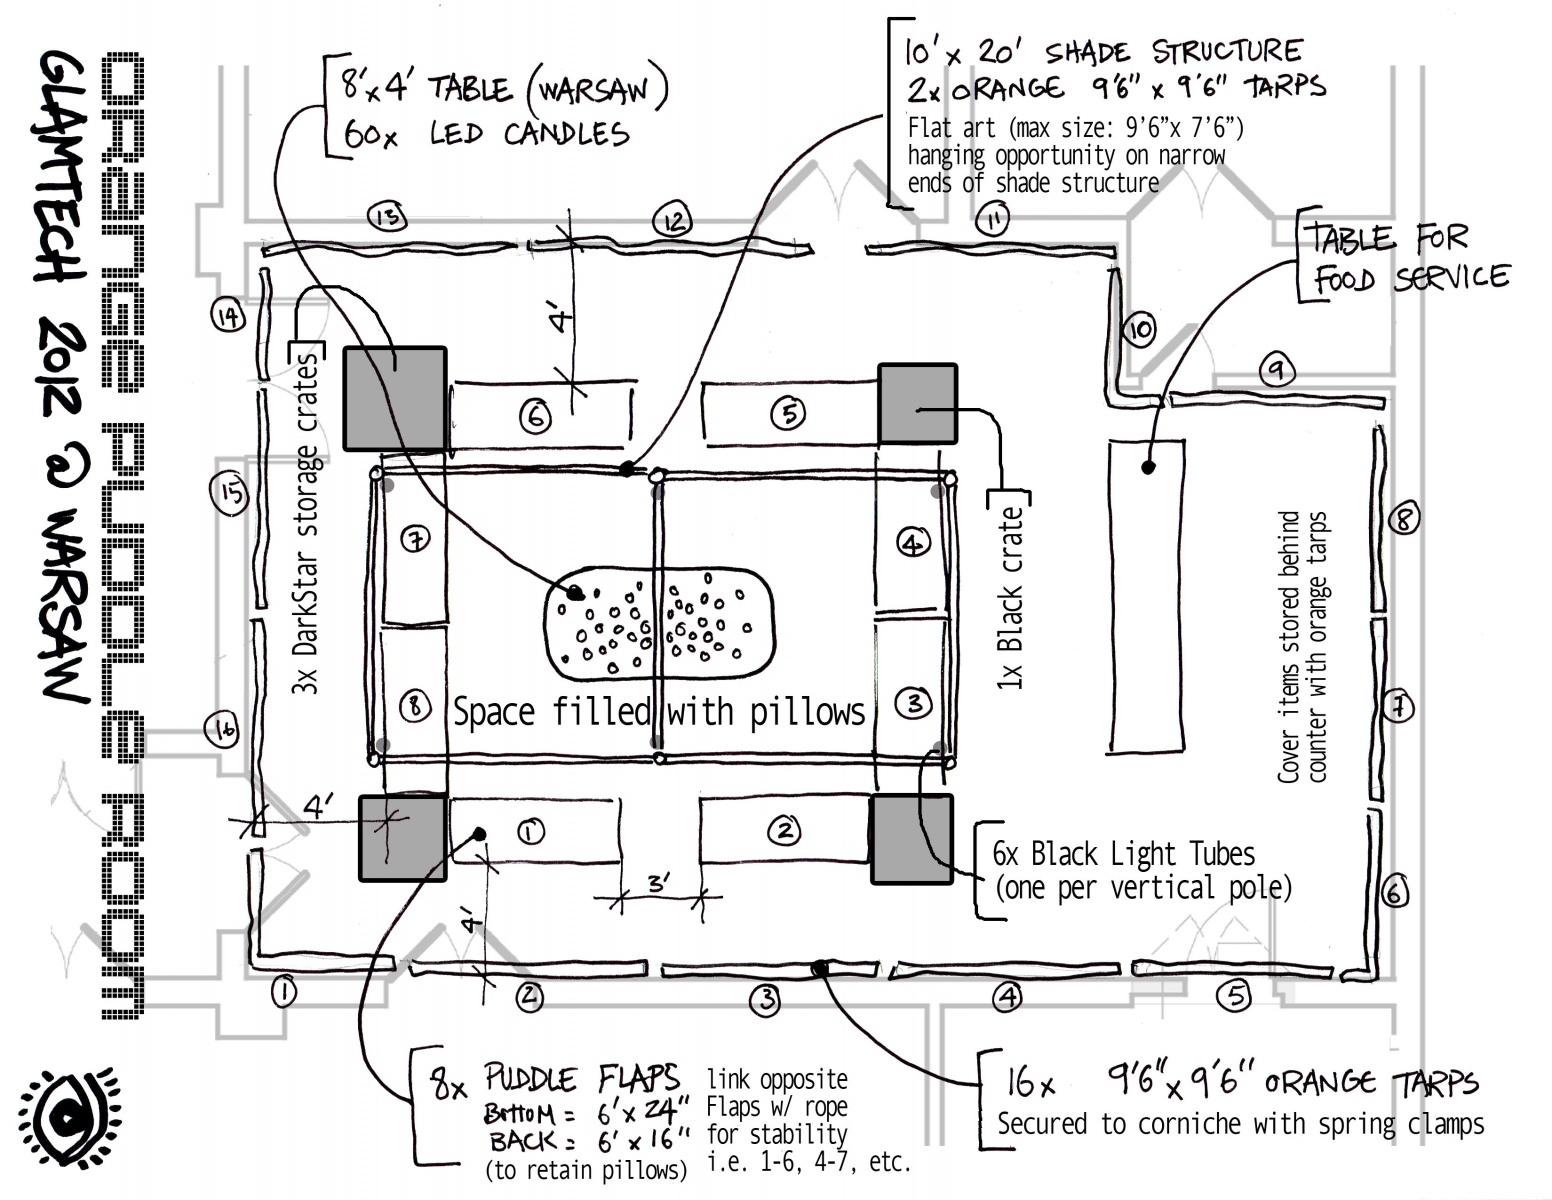 ORANGE PUDDLE ROOM
GLAMTECH 2012 @ WARSAW
8'x4' TABLE (WARSAW)
60x LED CANDLES
10' x 20' SHADE STRUCTURE
2x ORANGE 9'6" x 9'6" TARPS
Flat art (max size: 9'6"x 7'6")
hanging opportunity on narrow
ends of shade structure
TABLE FOR
FOOD SERVICE
13
12
11
14
10
9
15
8
16
7
6
1
2
3
4
5
4'
3x DarkStar storage crates
6
5
7
4
8
3
1
2
1x Black crate
Space filled with pillows
Cover items stored behind
counter with orange tarps
4'
3'
4'
6x Black Light Tubes
(one per vertical pole)
8x PUDDLE FLAPS
BOTTOM = 6' x 24"
BACK = 6' x 16"
(to retain pillows)
link opposite
Flaps w/ rope
for stability
i.e. 1-6, 4-7, etc.
16x 9'6" x 9'6" ORANGE TARPS
Secured to corniche with spring clamps